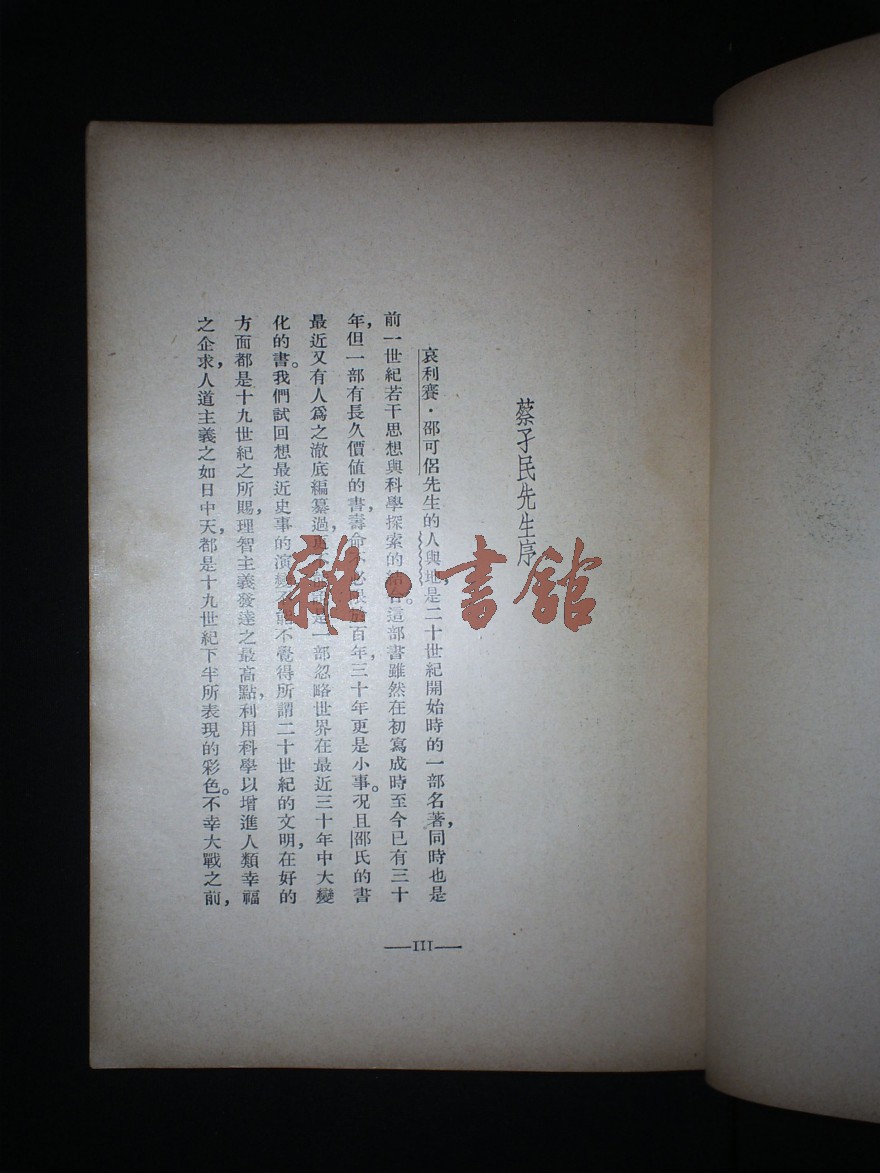 蔡孑民先生序
哀利賽·邵可侶先生的人與地,是二十世紀開始時的一部名著,同時也是
前一世紀若干思想與科學探索的結合。這部書雖然在初寫成時至今已有三十
年,但一部有長久價値的書,壽命不必限於百年,三十年更是小事。況且邵氏的書
最近又有人爲之澈底編纂過,是一部忽略世界在最近三十年中大變
化的書。我們試回想最近史事的演變,不能不覺得所謂二十世紀的文明,在好的
方面都是十九世紀之所賜,理智主義發達之最高點,利用科學以增進人類幸福
之企求,人道主義之如日中天,都是十九世紀下半所表現的彩色。不幸大戰之前,
—III—
雜·書館